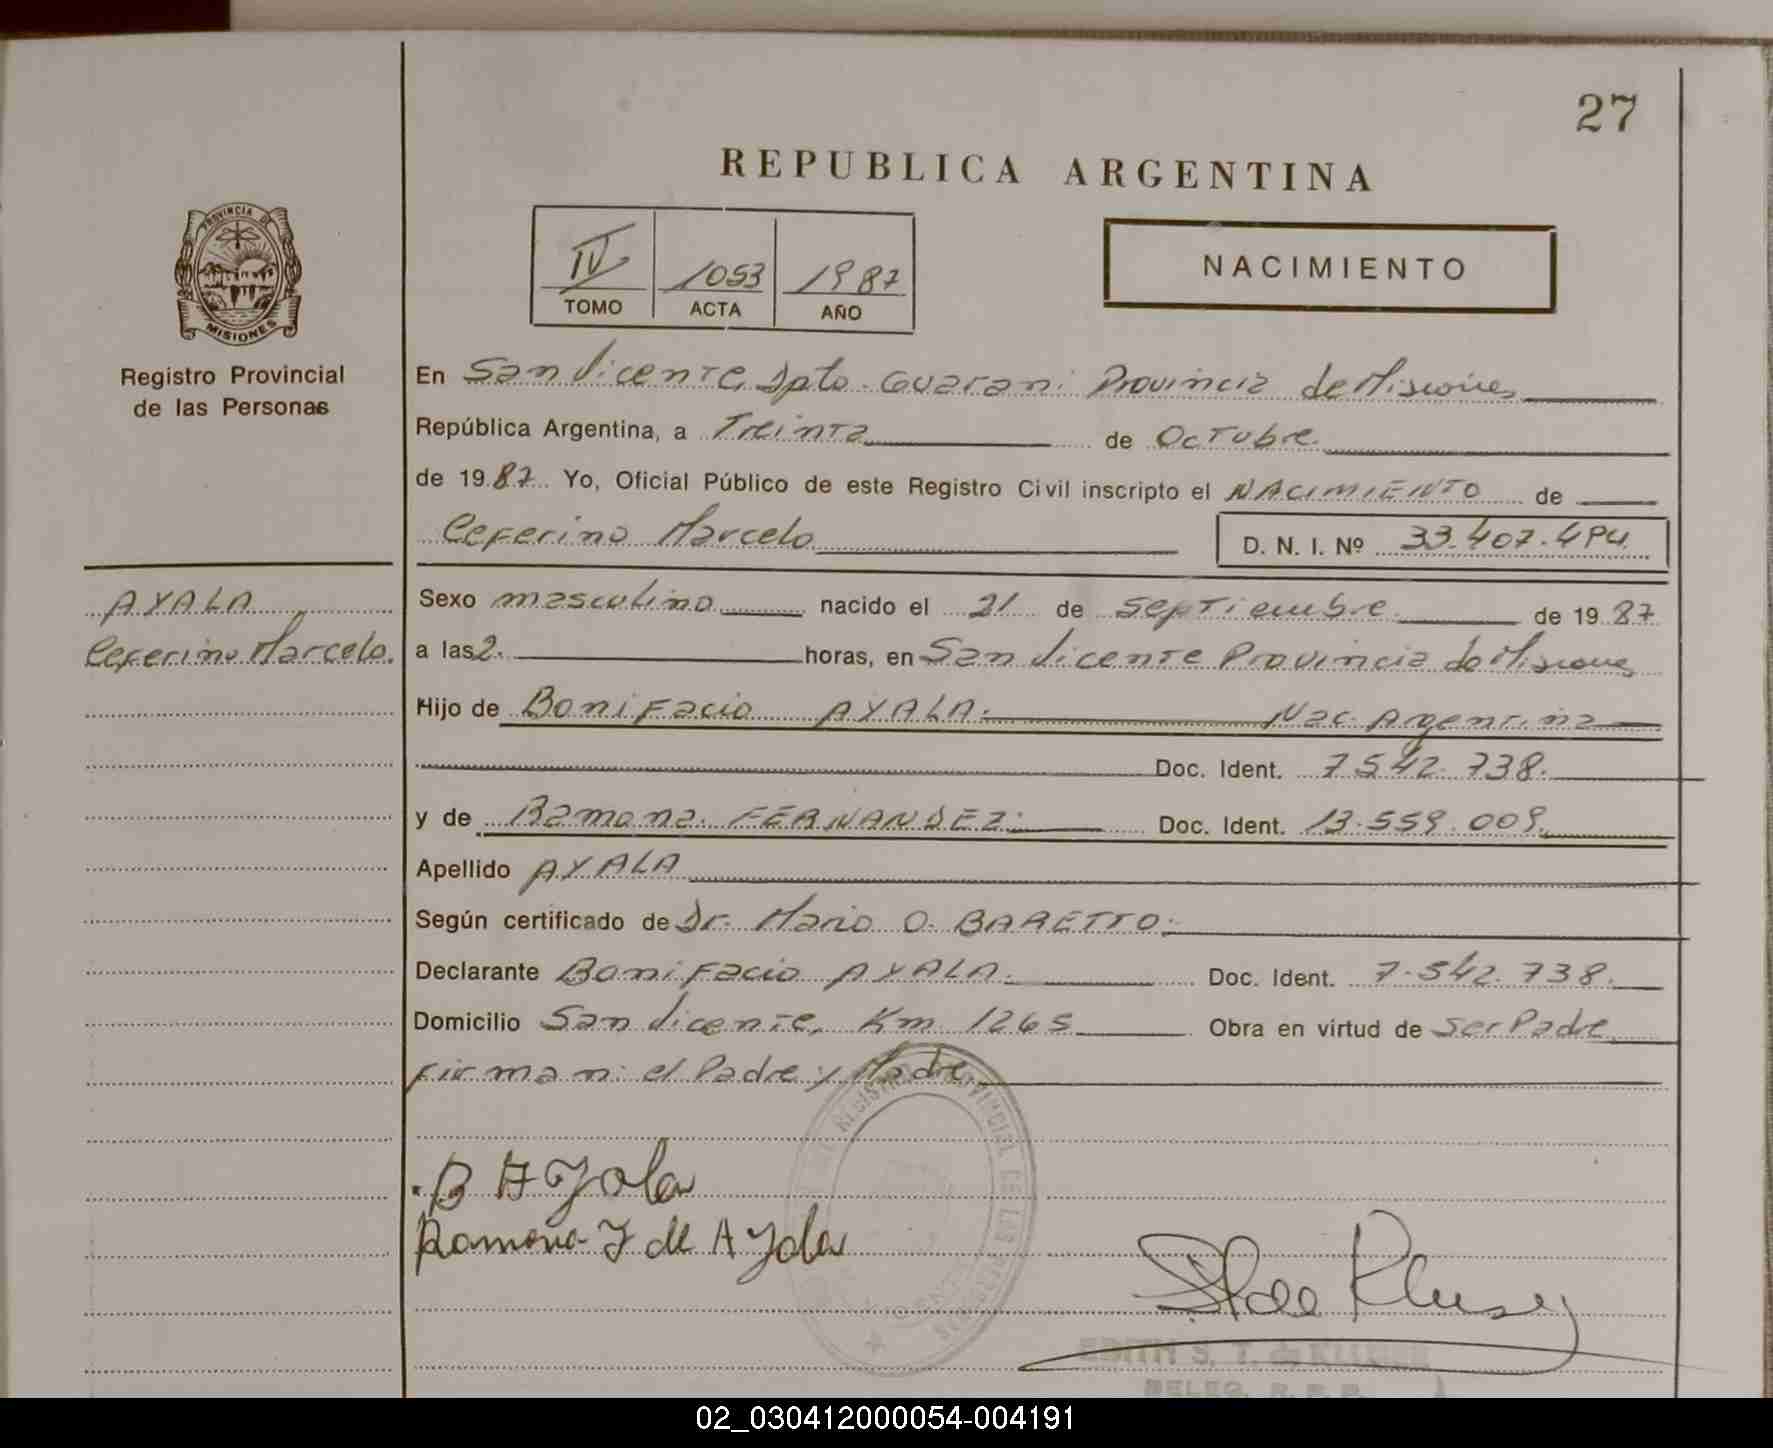 27
REPUBLICA ARGENTINA
PROVINCIA DE
MISIONES
Registro Provincial
de las Personas
IV 1053 1987
TOMO ACTA AÑO
NACIMIENTO
En San Vicente, Dpto. Guarani Provincia de Misiones
República Argentina, a Treinta de Octubre.
de 1987. Yo, Oficial Público de este Registro Civil inscripto el NACIMIENTO de
Ceferino Marcelo D. N. I. Nº 33.407.494
AYALA
Ceferino Marcelo.
Sexo masculino nacido el 21 de septiembre de 1987
a las 2. horas, en San Vicente Provincia de Misiones
Hijo de Bonifacio AYALA. Nac. Argentina
Doc. Ident. 7542.738.
y de Ramona FERNANDEZ. Doc. Ident. 13.559.009.
Apellido AYALA
Según certificado de Dr. Mario O. BARETTO.
Declarante Bonifacio AYALA. Doc. Ident. 7.542.738.
Domicilio San Vicente, Km 1265 Obra en virtud de Ser Padre
Firman: el Padre y Madre
B AYala
Ramona F de AYala
EDITH S. T. de
DELEG. R. P. P.
02_030412000054-004191